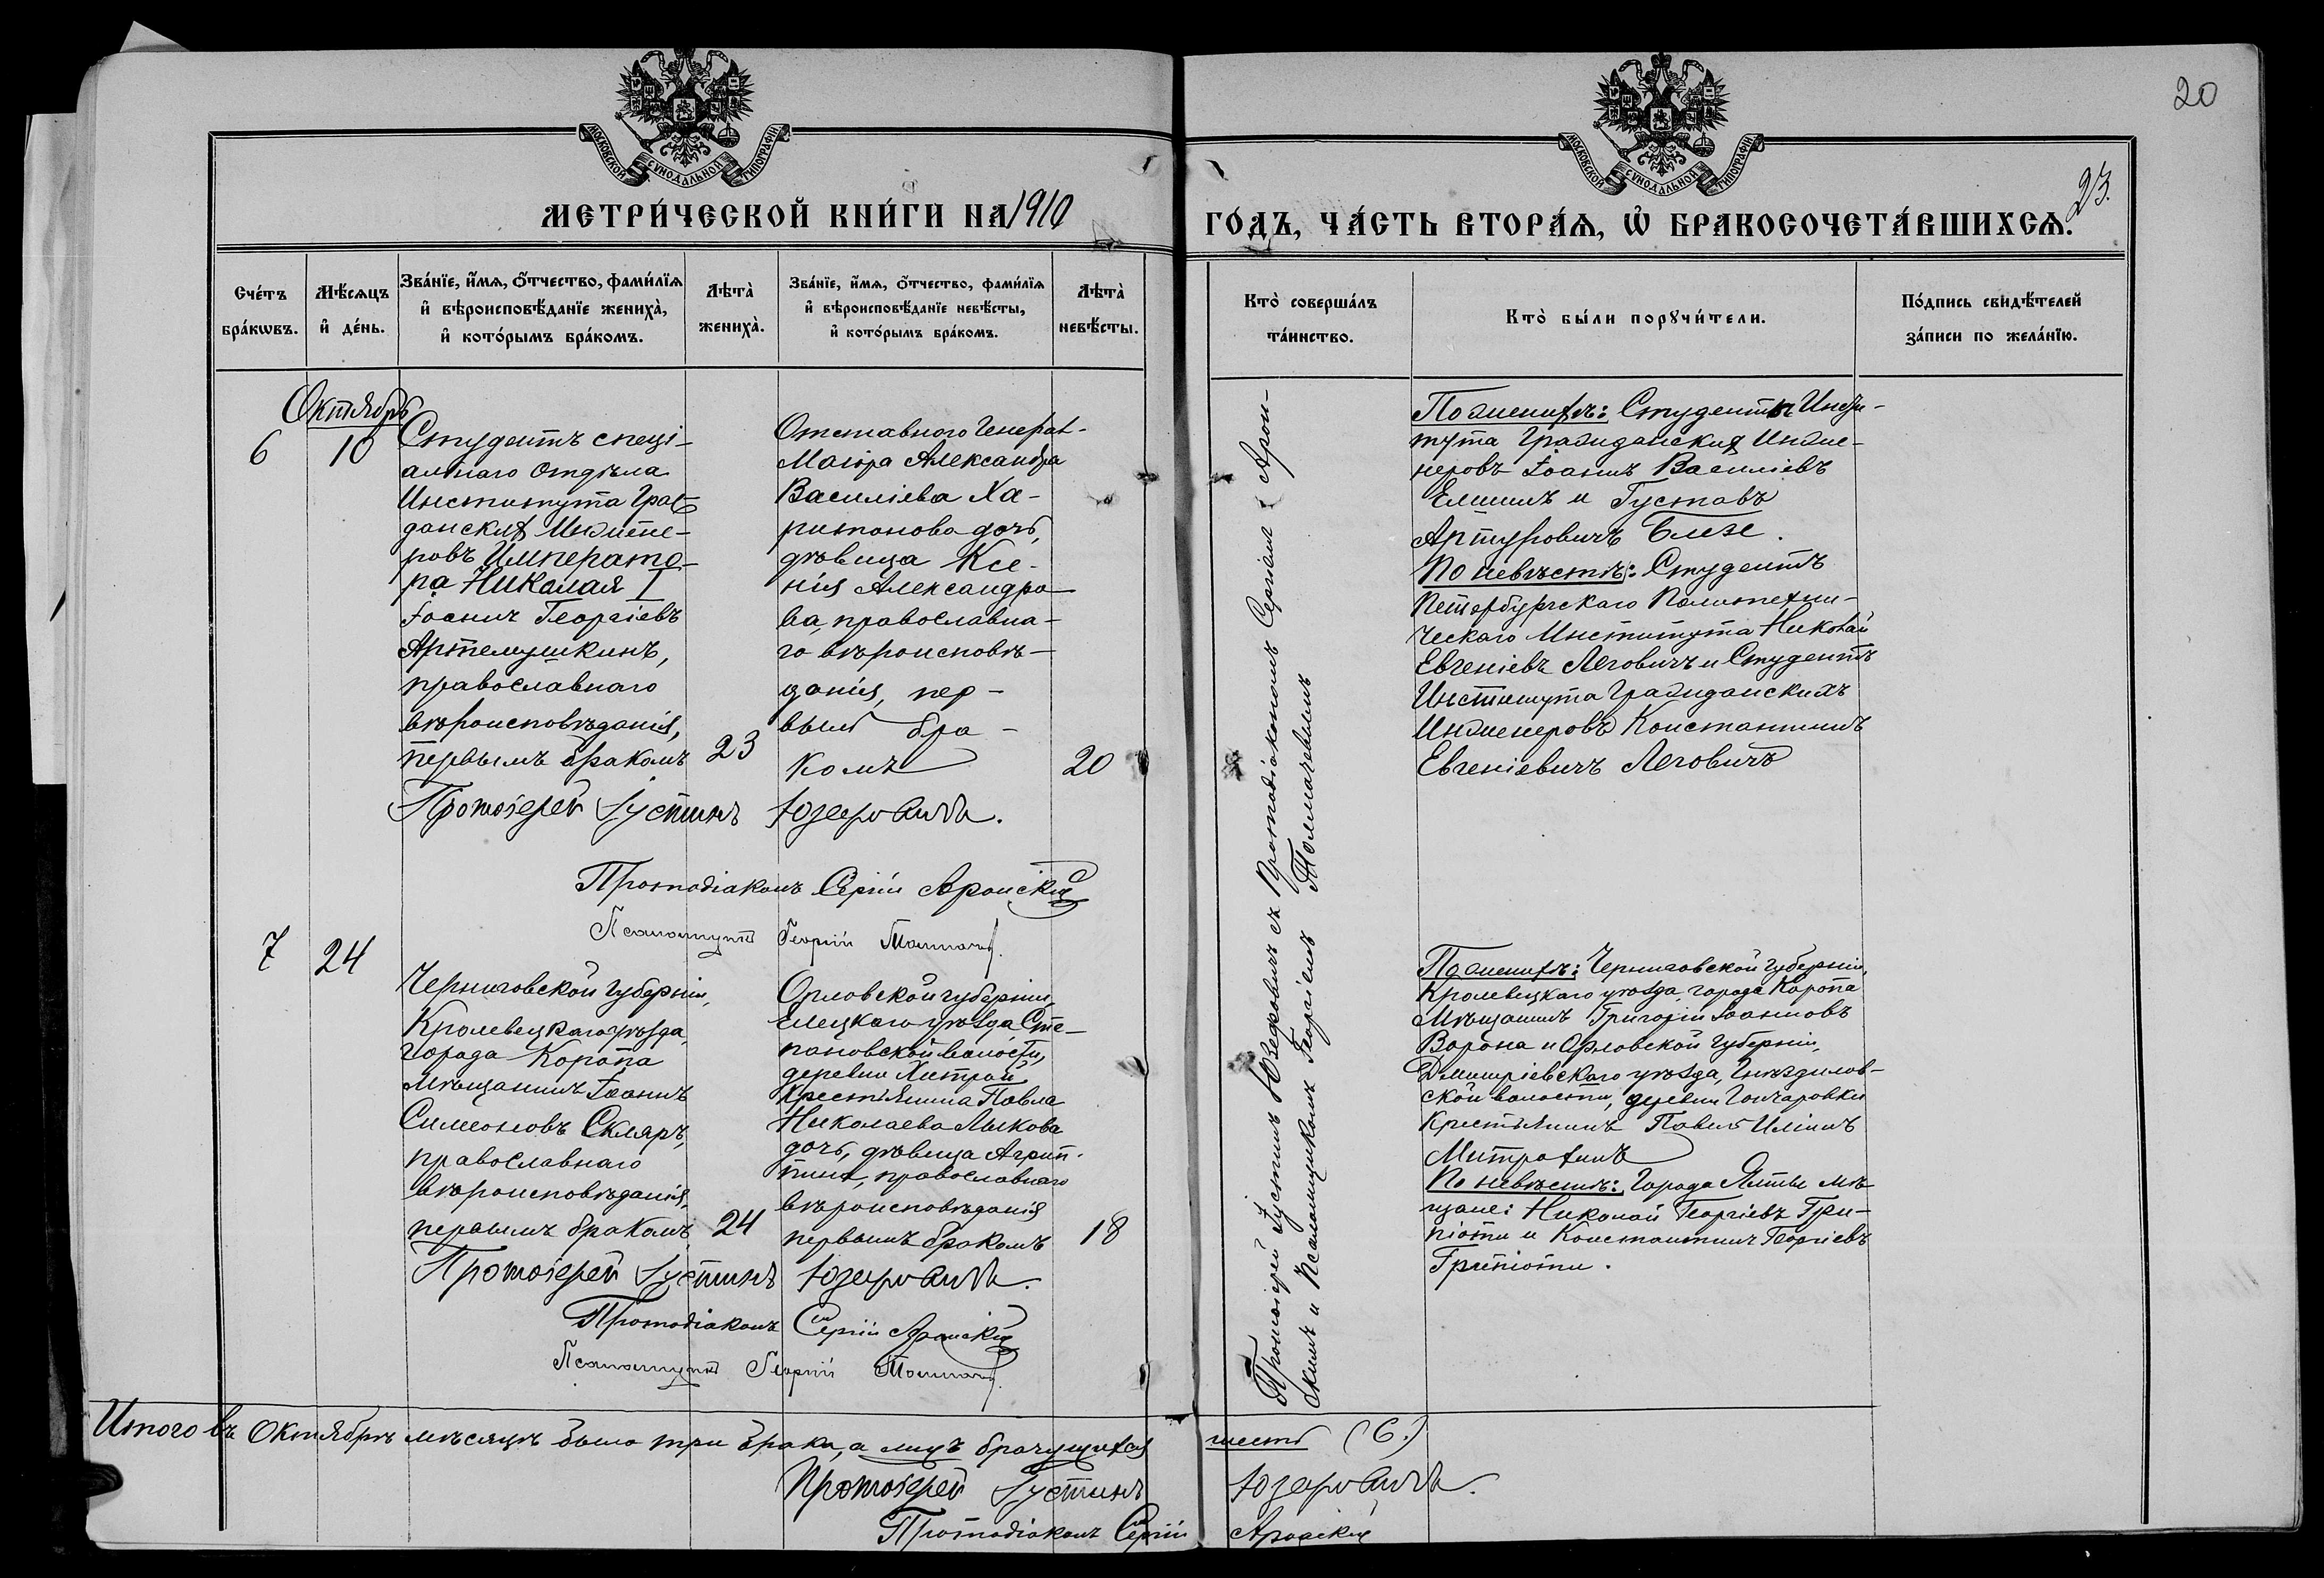 20
МОСКОВСКОЙ СѴНОДАЛЬНОЙ ТИПОГРАФІИ
МОСКОВСКОЙ СѴНОДАЛЬНОЙ ТИПОГРАФІИ
23.
МЕТРИ́ЧЕСКОЙ КНИ́ГИ НА 1910
ГО́ДЪ, ЧА́СТЬ ВТОРА́Ѧ, Ѡ҆ БРАКОСОЧЕТА́ВШИХСѦ.
Сче́тъ
бра́кωвъ.
Мѣ́сѧцъ
и҆ де́нь.
Зва́нїе, и҆́мѧ, ѻ҆́тчество, фами́лїѧ
и҆ вѣроисповѣ́данїе жениха̀,
и҆ кото́рымъ бра́комъ.
Лѣта̀
жениха̀.
Зва́нїе, и҆́мѧ, ѻ҆́тчество, фами́лїѧ
и҆ вѣроисповѣ́данїе невѣ́сты,
и҆ кото́рымъ бра́комъ.
Лѣта̀
невѣ́сты.
Кто̀ соверша́лъ
та́инство.
Кто̀ бы́ли порꙋчи́тели.
По́дпись свидѣ́телей
за́писи по жела́нїю.
Октябрь
6
10
Студентъ спеці-
альнаго отдѣла
Института Граж
данскихъ Инжене-
ровъ Императо-
ра Николая I
Іоаннъ Георгіевъ
Артемушкинъ,
православнаго
вѣроисповѣданія,
первымъ бракомъ
23
Отставного Генерал-
Маіора Александра
Василіева Ха-
ритонова дочь,
дѣвица Ксе-
нія Александро-
ва, православна-
го вѣроисповѣ-
данія, пер-
вым бра-
комъ
20
Протоіерей Іустинъ Юзефовичъ.
Протодіаконъ Сергій Аронскій
Псаломщикъ Георгій
По женихѣ: Студенты Инсти-
тута Гражданскихъ Инже-
неровъ Іоаннъ Василіевъ
и Густавъ
Артуровичъ
По невѣстѣ: Студентъ
Петербургскаго Политехни-
ческаго Института Николай
Евгеніевъ Леговичъ и Студентъ
Института Гражданскихъ
Инженеровъ Константинъ
Евгеніевичъ Леговичъ
Протоіерей Іустинъ Юзефовичъ съ Протодіакономъ Сергіемъ Арон-
скимъ и Псаломщикомъ Георгіемъ Толмачевымъ
7
24
Черниговской губерніи,
Кролевецкаго уѣзда,
города Коропа
мѣщанинъ Іоаннъ
Симеоновъ Скляръ,
православнаго
вѣроисповѣданія,
первымъ бракомъ
24
Орловской губерніи,
Елецкаго уѣзда, Сте-
пановской волости,
деревни Хитрой
крестьянина Павла
Николаева Лыкова
дочь, дѣвица Агрип-
пина, православнаго
вѣроисповѣданія
первымъ бракомъ
18
Протоіерей Іустинъ Юзефовичъ.
Протодіаконъ Сергій Аронскій
Псаломщикъ Георгій
По женихѣ: Черниговской губерніи,
Кролевецкаго уѣзда, города Коропа
мѣщанинъ Григорій Іоанновъ
Ворона и Орловской губерніи,
Дмитріевскаго уѣзда, Гнѣздилов-
ской волости, деревни Гончаровки
крестьянинъ Павелъ Иліинъ
Митрохинъ
По невѣстѣ: Города Ялты мѣ-
щане: Николай Георгіевъ Гри-
піоти и Константинъ Георгіевъ
Грипіоти.
Итого въ Октябрѣ мѣсяцѣ было три брака, а лицъ брачущихся шесть (6.)
Протоіерей Іустинъ Юзефовичъ.
Протодіаконъ Сергій Аронскій